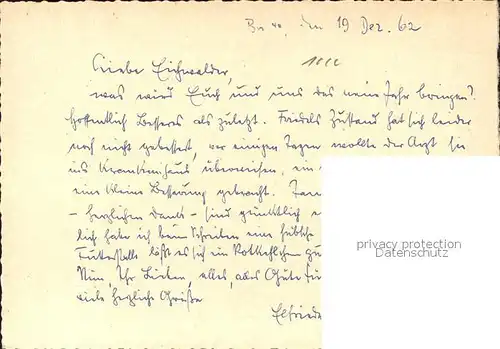 den 19 Dez. 62
Liebe Eichwalder,
was wird Euch und uns das neue Jahr bringen?
Hoffentlich Besseres als zuletzt. Friedels Zustand hat sich leider
noch nicht gebessert, vor einigen Tagen wollte der Arzt sie
ins Krankenhaus überweisen, ein
eine kleine Besserung gebracht.
- herzlichen Dank - sind pünktlich
lich habe ich beim Schreiben eine hübsche
Futterstelle läßt es sich ein Rotkehlchen gu
Nun, Ihr Lieben, alles, alles Gute für
viele herzliche Grüße
Elfriede
privacy protection
Datenschutz